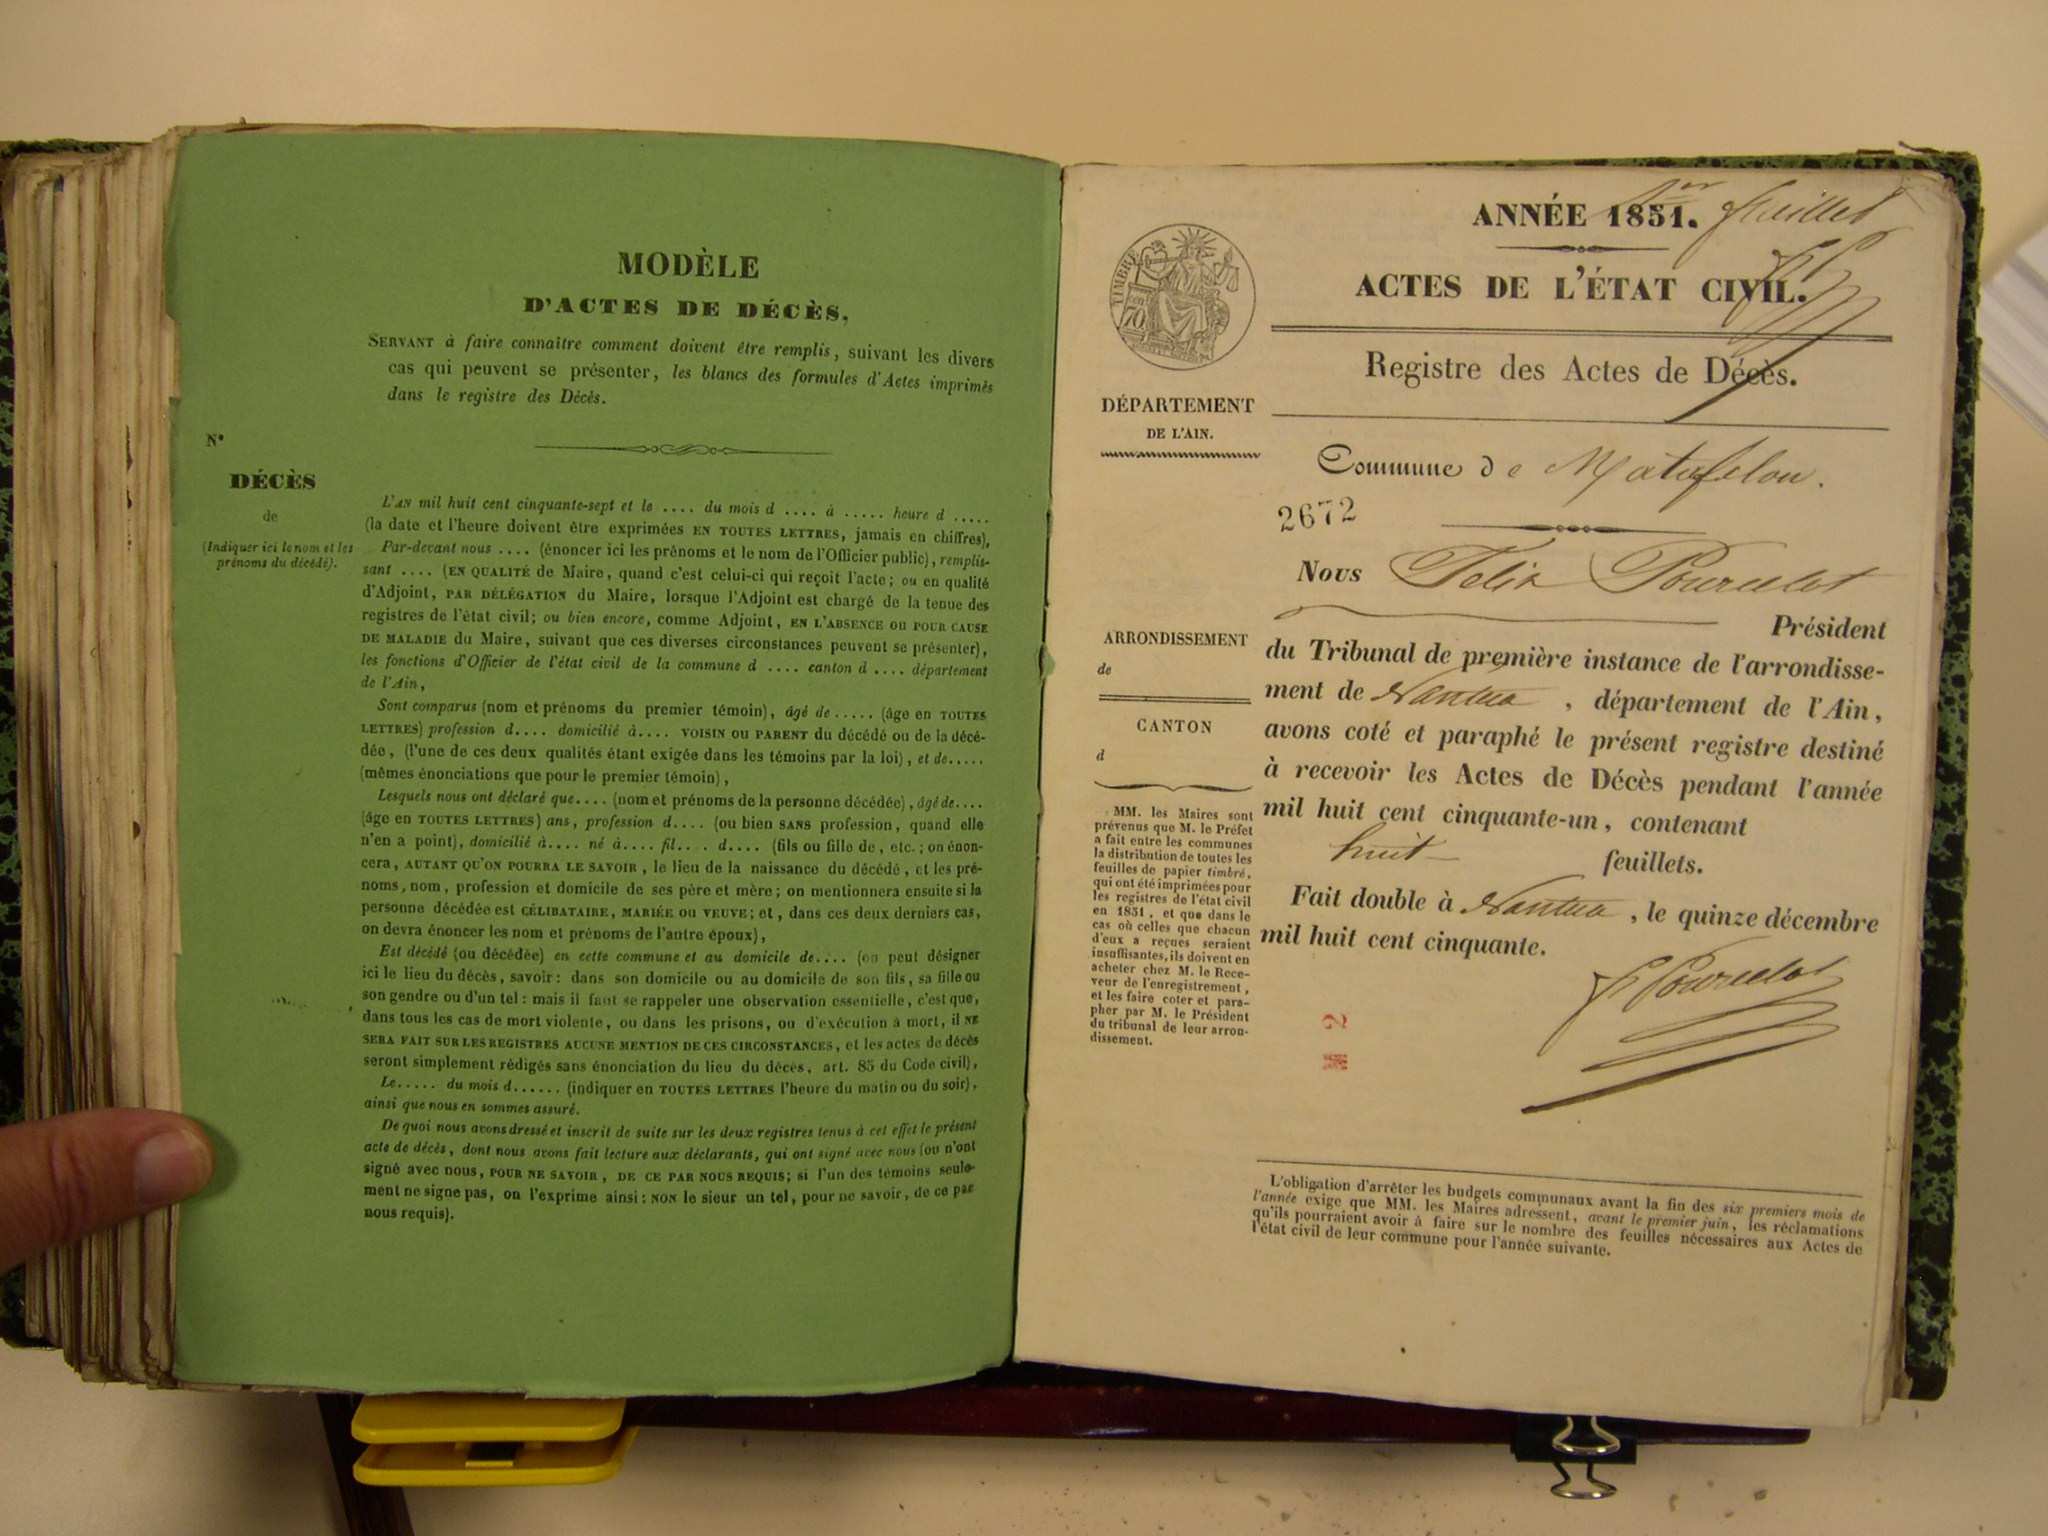 MODÈLE
D'ACTES DE DÉCÈS,
SERVANT à faire connaître comment doivent être remplis, suivant les divers
cas qui peuvent se présenter, les blancs des formules d'Actes imprimés
dans le registre des Décès.
N°
DÉCÈS
de
(Indiquer ici le nom et les
prénoms du décédé).
L'AN mil huit cent cinquante-sept et le .... du mois d .... à ..... heure d .....
(la date et l'heure doivent être exprimées EN TOUTES LETTRES, jamais en chiffres),
Par-devant nous .... (énoncer ici les prénoms et le nom de l'Officier public), remplis-
sant .... (EN QUALITÉ de Maire, quand c'est celui-ci qui reçoit l'acte; ou en qualité
d'Adjoint, PAR DÉLÉGATION du Maire, lorsque l'Adjoint est chargé de la tenue des
registres de l'état civil; ou bien encore, comme Adjoint, EN L'ABSENCE OU POUR CAUSE
DE MALADIE du Maire, suivant que ces diverses circonstances peuvent se présenter),
les fonctions d'Officier de l'état civil de la commune d .... canton d .... département
de l'Ain,
Sont comparus (nom et prénoms du premier témoin), âgé de ..... (âge en TOUTES
LETTRES) profession d.... domicilié à.... VOISIN OU PARENT du décédé ou de la décé-
dée, (l'une de ces deux qualités étant exigée dans les témoins par la loi), et de.....
(mêmes énonciations que pour le premier témoin),
Lesquels nous ont déclaré que.... (nom et prénoms de la personne décédée), âgé de....
(âge en TOUTES LETTRES) ans, profession d.... (ou bien SANS profession, quand elle
n'en a point), domicilié à.... né à.... fil.... d.... (fils ou fille de, etc.; on énon-
cera, AUTANT QU'ON POURRA LE SAVOIR, le lieu de la naissance du décédé, et les pré-
noms, nom, profession et domicile de ses père et mère; on mentionnera ensuite si la
personne décédée est CÉLIBATAIRE, MARIÉE OU VEUVE; et, dans ces deux derniers cas,
on devra énoncer les nom et prénoms de l'autre époux),
Est décédé (ou décédée) en cette commune et au domicile de.... (on peut désigner
ici le lieu du décès, savoir: dans son domicile ou au domicile de son fils, sa fille ou
son gendre ou d'un tel: mais il faut se rappeler une observation essentielle, c'est que,
dans tous les cas de mort violente, ou dans les prisons, ou d'exécution à mort, il NE
SERA FAIT SUR LES REGISTRES AUCUNE MENTION DE CES CIRCONSTANCES, et les actes de décès
seront simplement rédigés sans énonciation du lieu du décès, art. 85 du Code civil),
Le..... du mois d...... (indiquer en TOUTES LETTRES l'heure du matin ou du soir),
ainsi que nous en sommes assuré.
De quoi nous avons dressé et inscrit de suite sur les deux registres tenus à cet effet le présent
acte de décès, dont nous avons fait lecture aux déclarants, qui ont signé avec nous (ou n'ont
signé avec nous, POUR NE SAVOIR, DE CE PAR NOUS REQUIS; si l'un des témoins seule-
ment ne signe pas, on l'exprime ainsi: NON le sieur un tel, pour ne savoir, de ce par
nous requis).
1er feuillet
ANNÉE 1851.
ACTES DE L'ÉTAT CIVIL.
Registre des Actes de Décès.
TIMBRE
70
DÉPARTEMENT
DE L'AIN.
Commune de Matafelon.
2672
Nous Félix Pourcelot
Président
du Tribunal de première instance de l'arrondisse-
ment de Nantua, département de l'Ain,
avons coté et paraphé le présent registre destiné
à recevoir les Actes de Décès pendant l'année
mil huit cent cinquante-un, contenant
huit feuillets.
Fait double à Nantua, le quinze décembre
mil huit cent cinquante.
F Pourcelot
ARRONDISSEMENT
de
CANTON
d
MM. les Maires sont
prévenus que M. le Préfet
a fait entre les communes
la distribution de toutes les
feuilles de papier timbré,
qui ont été imprimées pour
les registres de l'état civil
en 1851, et que dans le
cas où celles que chacun
d'eux a reçues seraient
insuffisantes, ils doivent en
acheter chez M. le Rece-
veur de l'enregistrement,
et les faire coter et para-
pher par M. le Président
du tribunal de leur arron-
dissement.
L'obligation d'arrêter les budgets communaux avant la fin des six premiers mois de
l'année exige que MM. les Maires adressent, avant le premier juin, les réclamations
qu'ils pourraient avoir à faire sur le nombre des feuilles nécessaires aux Actes de
l'état civil de leur commune pour l'année suivante.